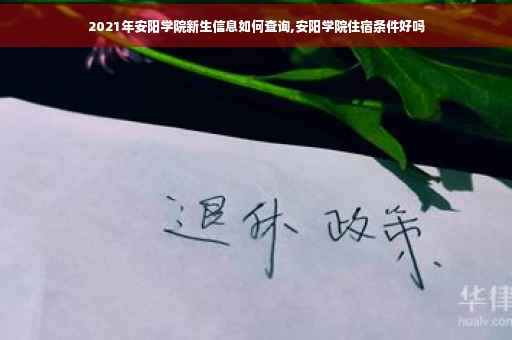 2021年安阳学院新生信息如何查询,安阳学院住宿条件好吗
退休 政策
华律
hualv.com